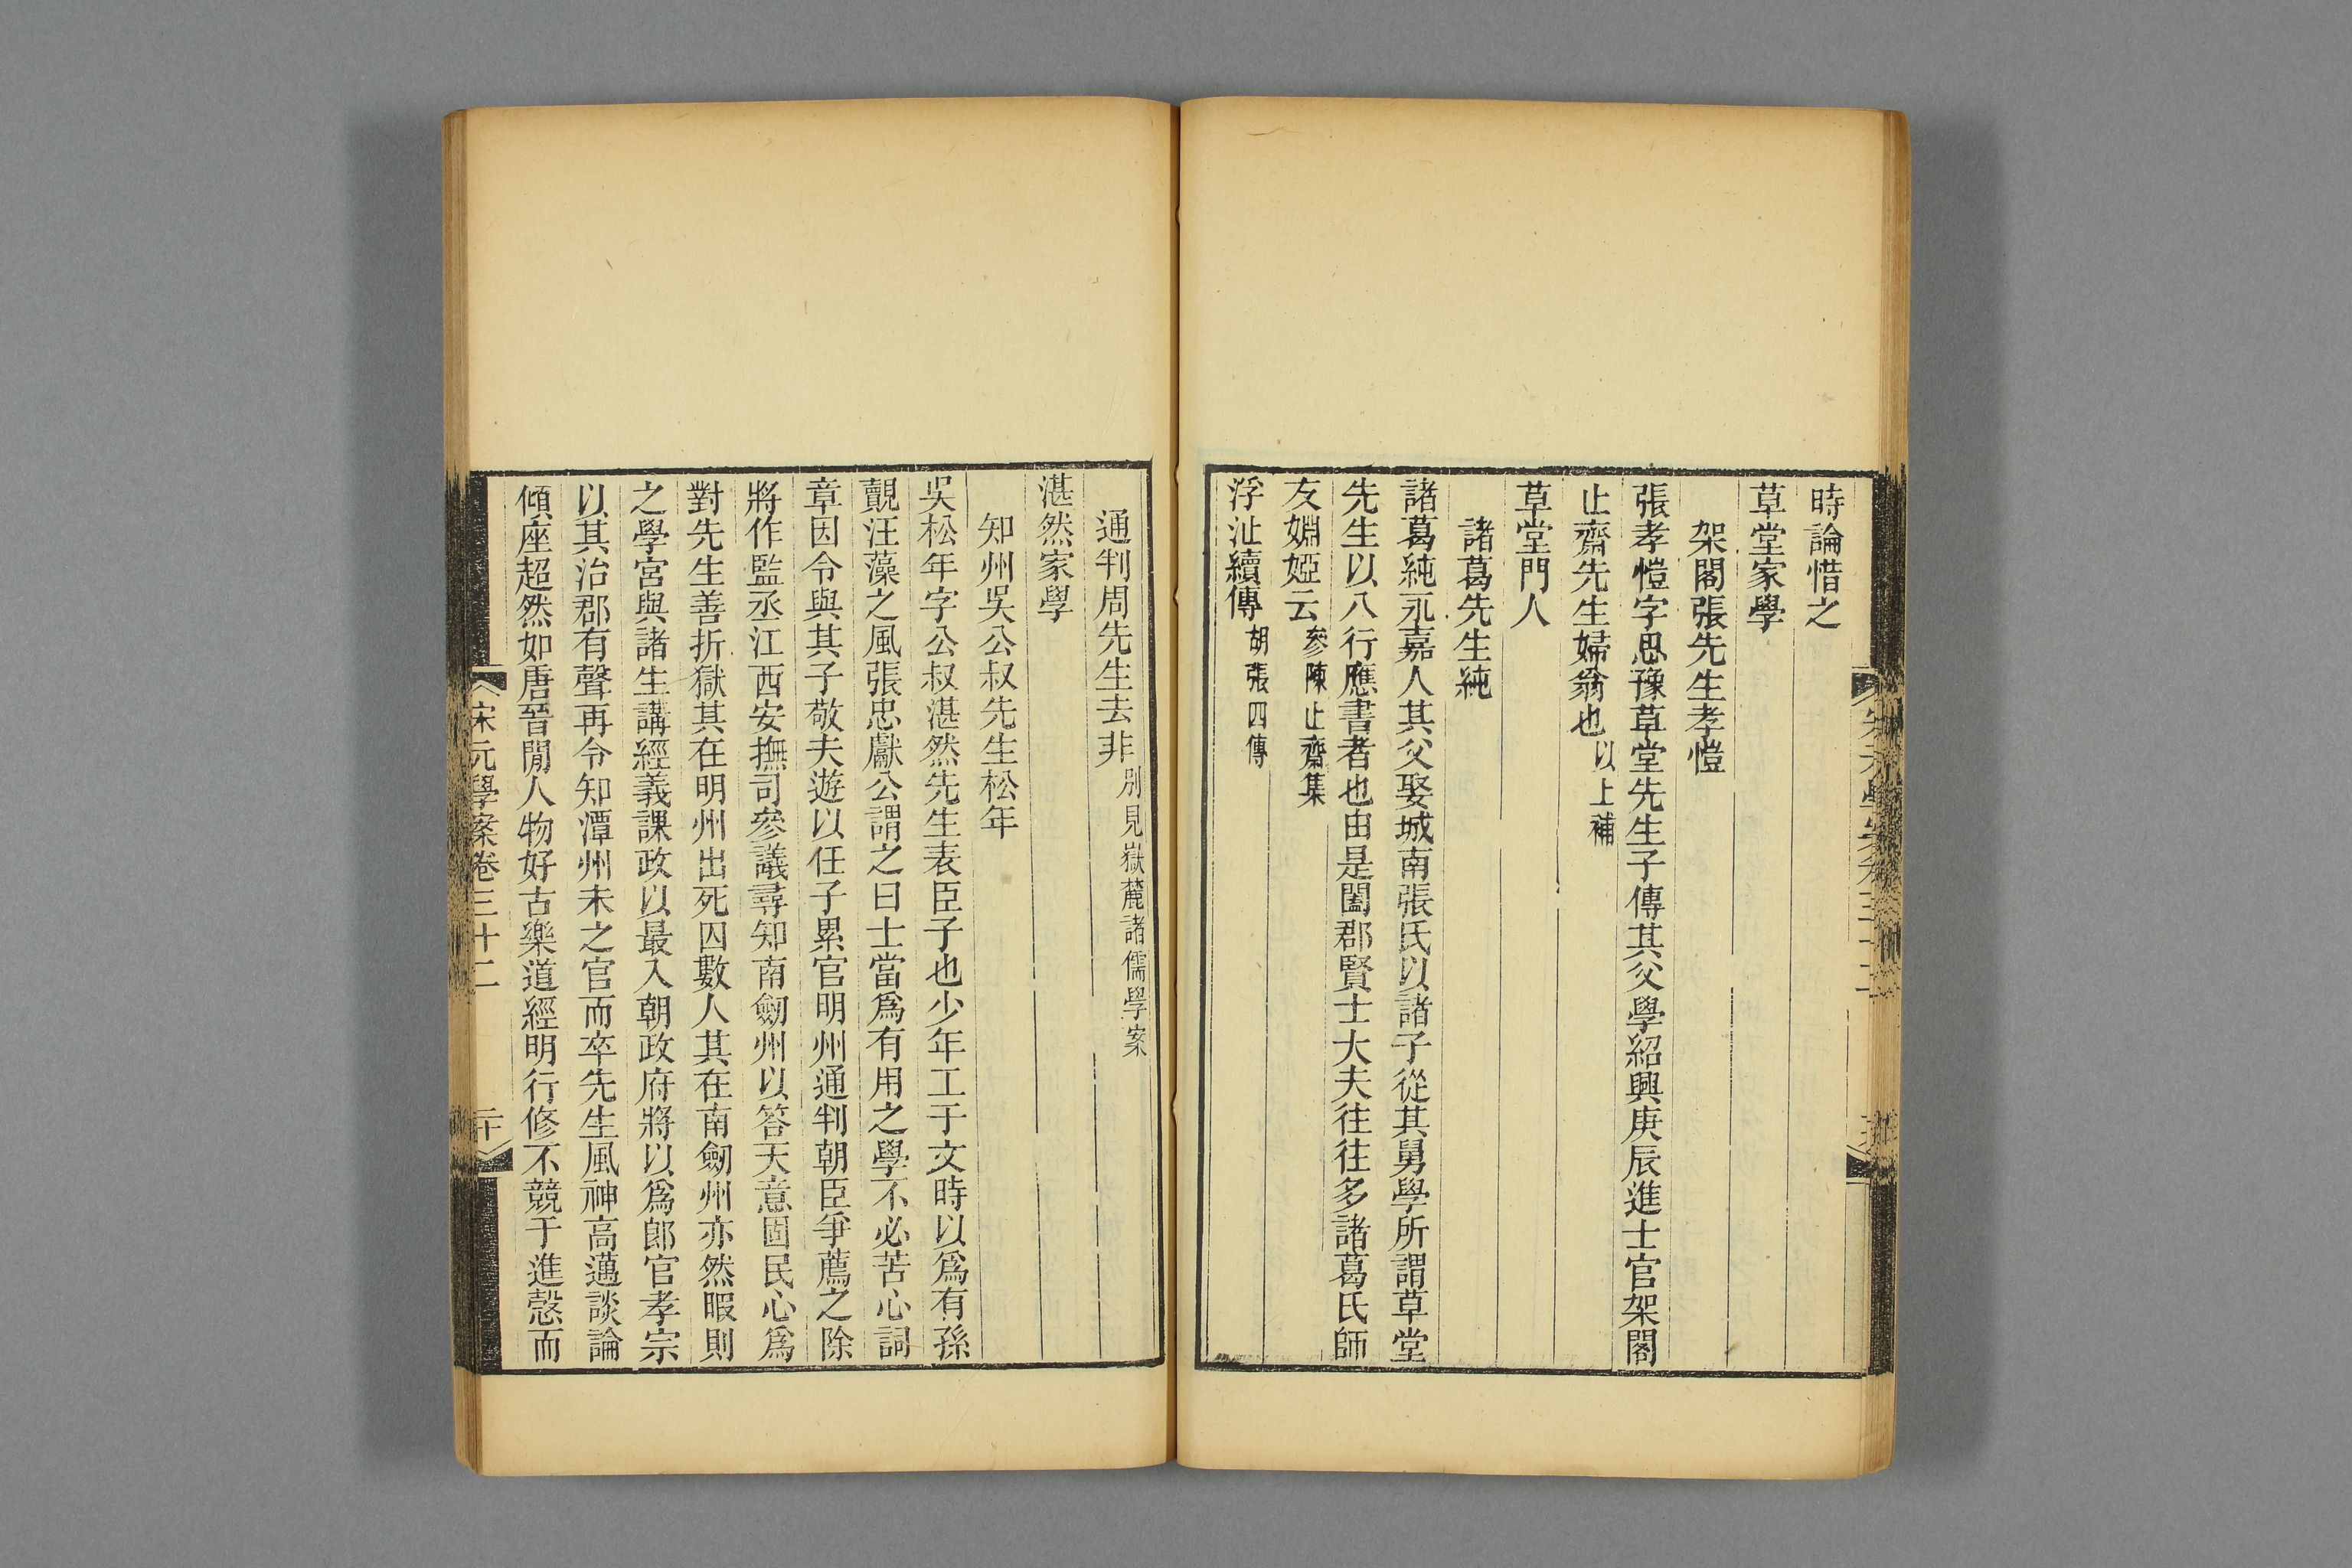 時論惜之
草堂家學
架閣張先生孝愷
張孝愷字思豫草堂先生子傳其父學紹興庚辰進士官架閣
止齋先生婦翁也以上補
草堂門人
諸葛先生純
諸葛純永嘉人其父娶城南張氏以諸子從其舅學所謂草堂
先生以八行應書者也由是闔郡賢士大夫往往多諸葛氏師
友婣婭云參陳止齋集
浮沚續傳胡張四傳
通判周先生去非別見嶽麓諸儒學案
湛然家學
知州吳公叔先生松年
吳松年字公叔湛然先生表臣子也少年工于文時以爲有孫
覿汪藻之風張忠獻公謂之曰士當爲有用之學不必苦心詞
章因令與其子敬夫遊以任子累官明州通判朝臣爭薦之除
將作監丞江西安撫司參議尋知南劒州以答天意固民心爲
對先生善折獄其在明州出死囚數人其在南劒州亦然暇則
之學宮與諸生講經義課政以最入朝政府將以爲郎官孝宗
以其治郡有聲再令知潭州未之官而卒先生風神高邁談論
傾座超然如唐晉閒人物好古樂道經明行修不競于進愨而
宋元學案卷三十二
二十